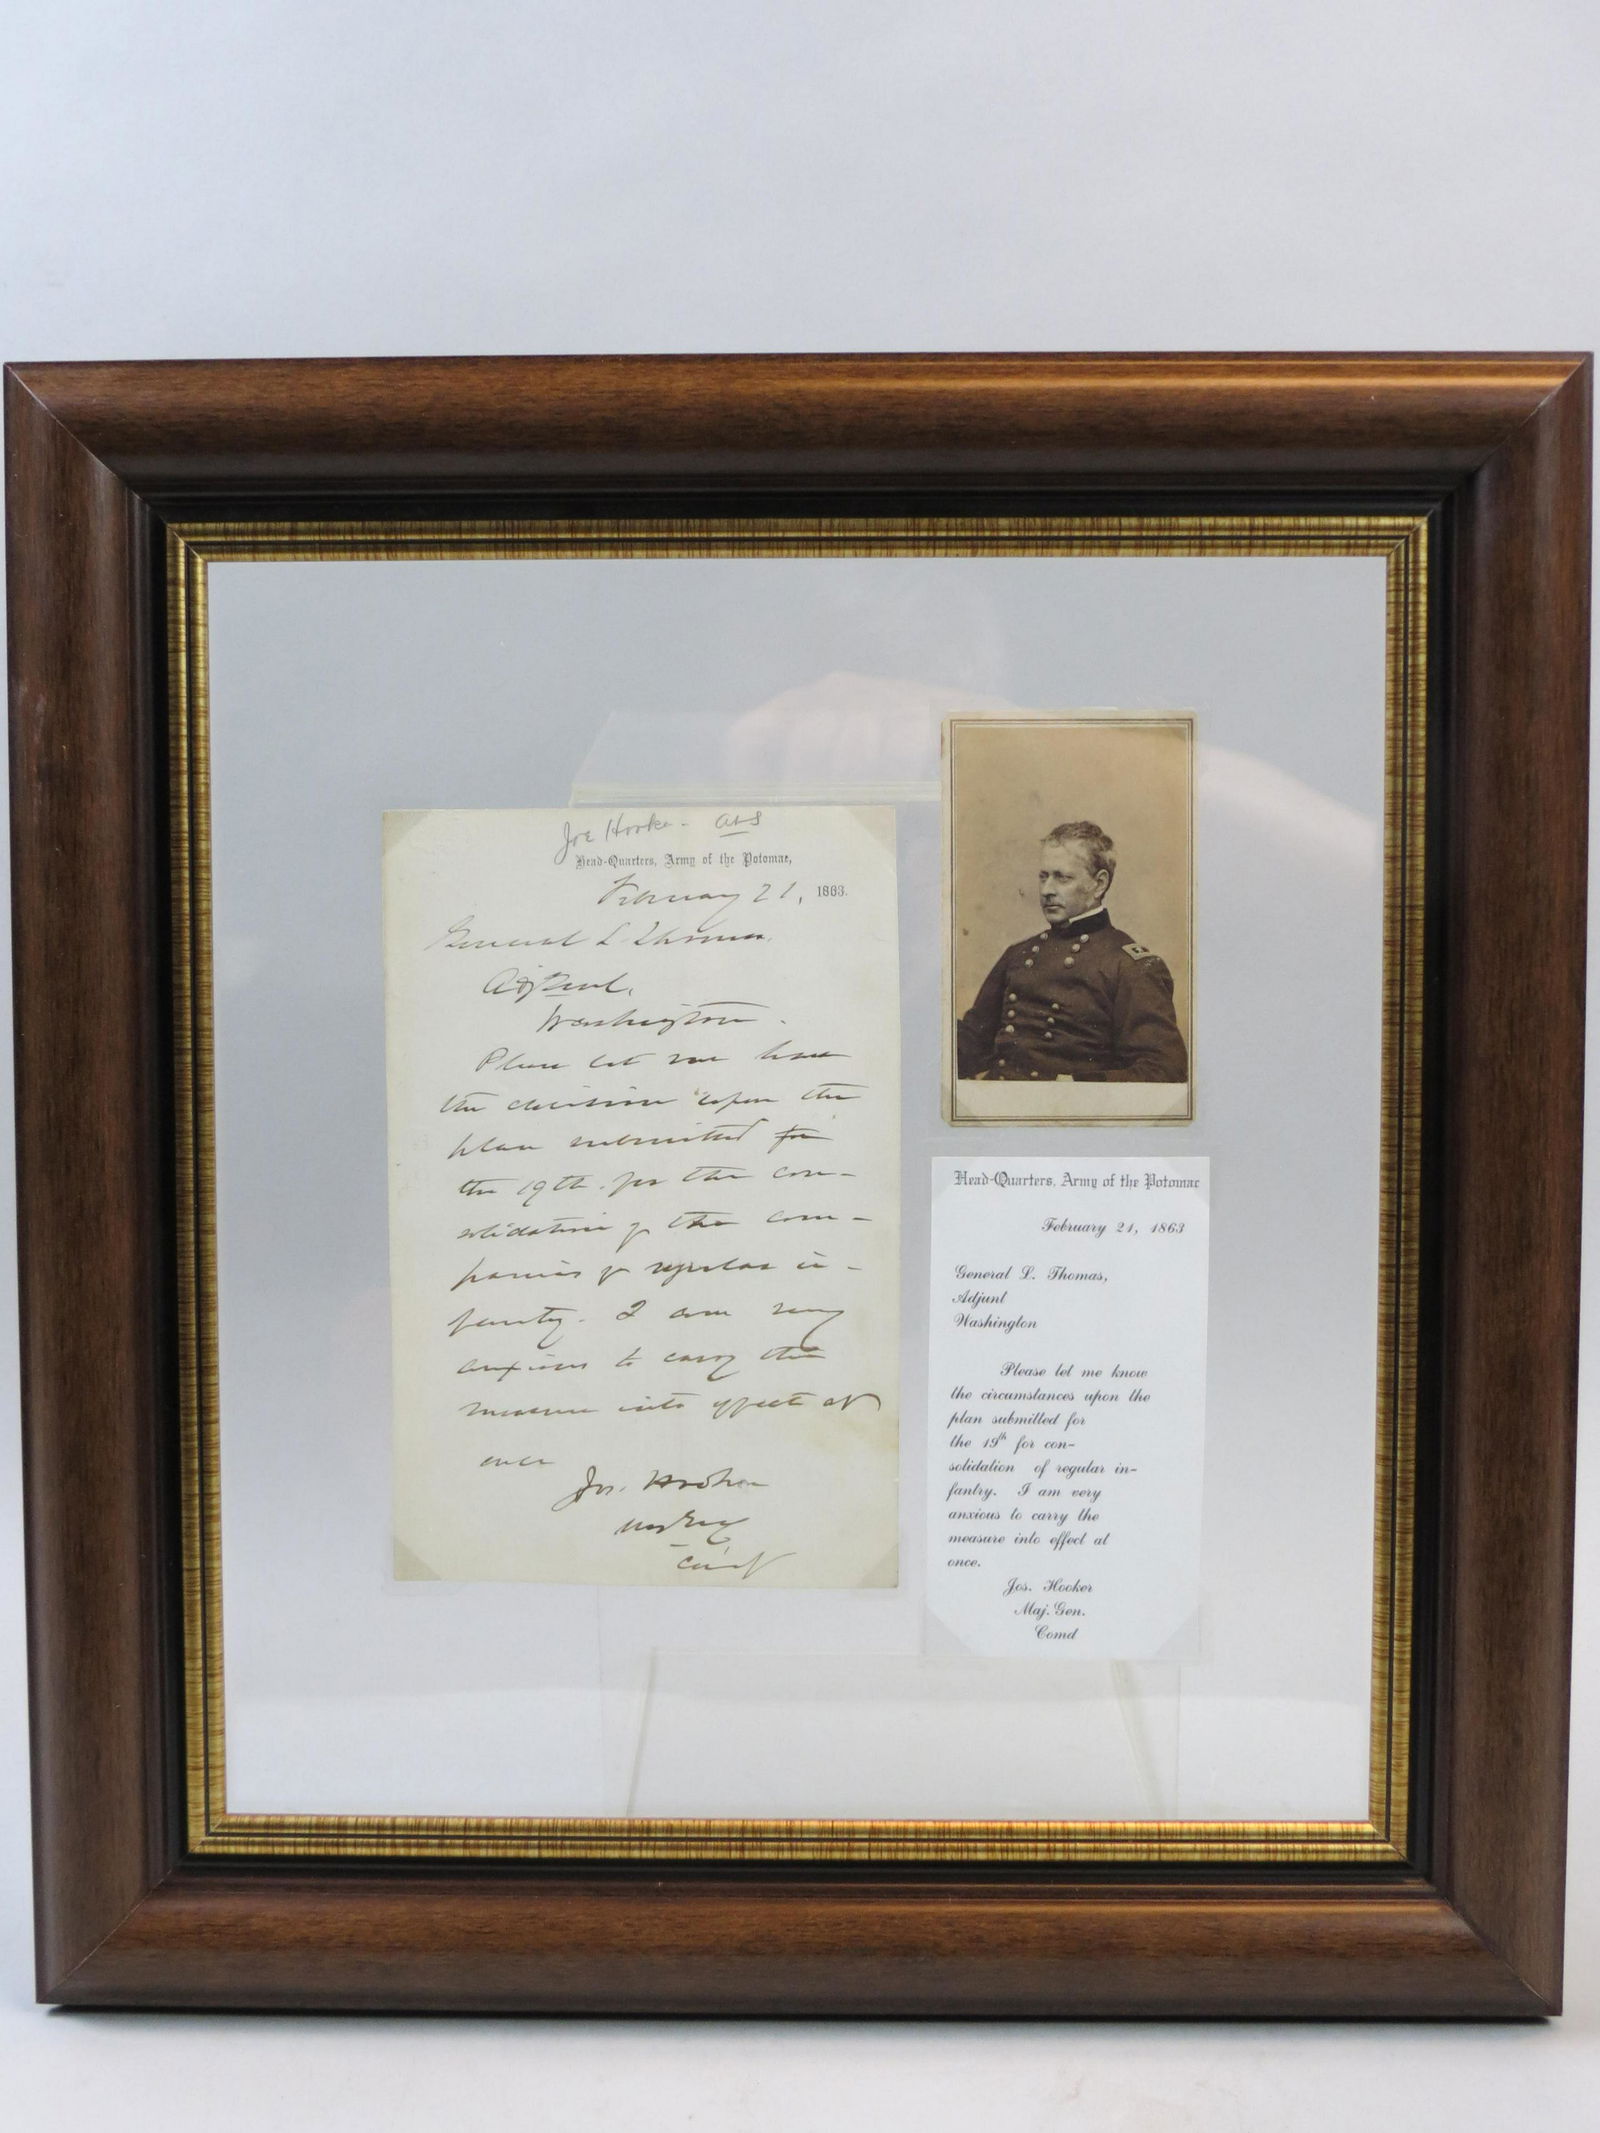 Joe Hooker - ALS
Head-Quarters, Army of the Potomac,
February 21, 1863.
General L. Thomas,
Washington.
Please let me have
the decision upon the
plan submitted for
the 19th. for the con-
solidation of the com-
panies of regular in-
fantry. I am very
anxious to carry this
measure into effect at
once
Jos. Hooker
Maj Gen
Comd
Head-Quarters, Army of the Potomac
February 21, 1863
General L. Thomas,
Adjunt
Washington
Please let me know
the circumstances upon the
plan submitted for
the 19th for con-
solidation of regular in-
fantry. I am very
anxious to carry the
measure into effect at
once.
Jos. Hooker
Maj. Gen.
Comd